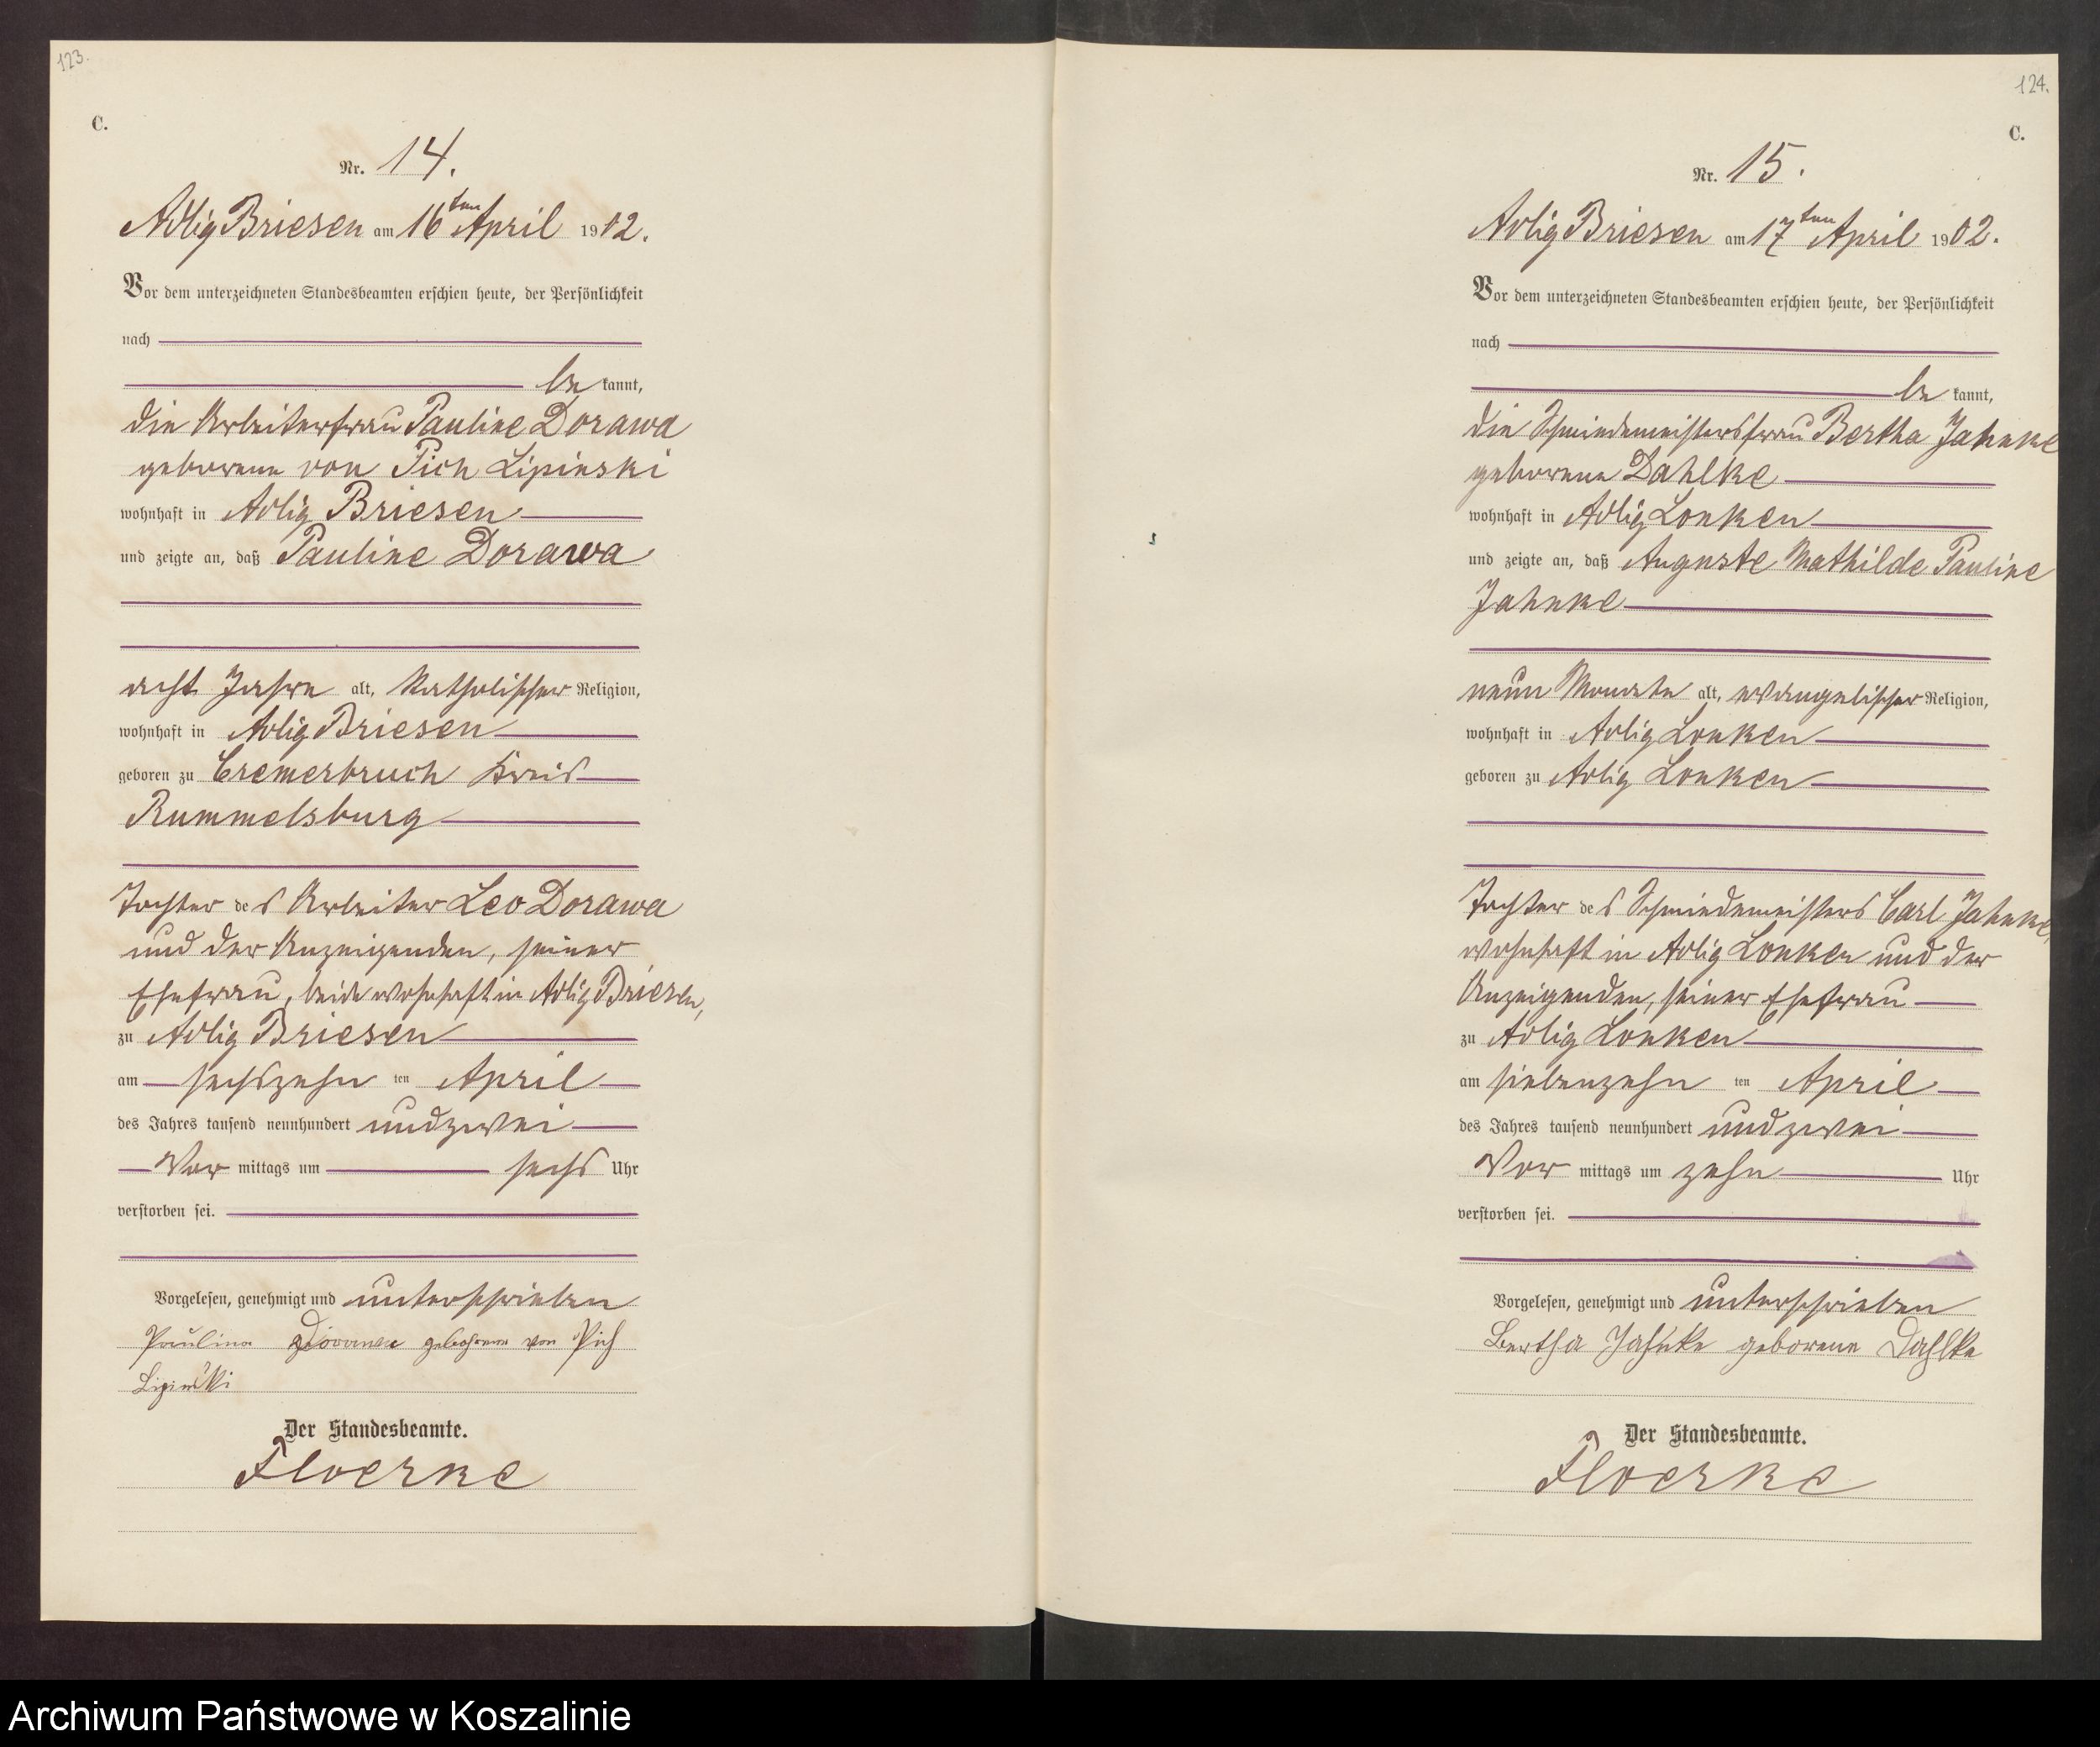 123.
C.
Nr. 14.
Adlig Briesen am 16ten April 1902.
Vor dem unterzeichneten Standesbeamten erschien heute, der Persönlichkeit
nach
be kannt,
die Arbeiterfrau Pauline Dorawa
geborene von Pich Lipinski
wohnhaft in Adlig Briesen
und zeigte an, daß Pauline Dorawa
acht Jahre alt, katholischer Religion,
wohnhaft in Adlig Briesen
geboren zu Cremerbruch Kreis
Rummelsburg
Tochter des Arbeiter Leo Dorawa
und der Anzeigenden, seiner
Ehefrau, beide wohnhaft in Adlig Briesen,
zu Adlig Briesen
am sechszehn ten April
des Jahres tausend neunhundert undzwei
Vor mittags um sechs Uhr
verstorben sei.
Vorgelesen, genehmigt und unterschrieben
Paulina Dorawa geborene von Pich
Lipinski
Der Standesbeamte.
Floerke
124.
C.
Nr. 15.
Adlig Briesen am 17ten April 1902.
Vor dem unterzeichneten Standesbeamten erschien heute, der Persönlichkeit
nach
be kannt,
die Schmiedemeistersfrau Bertha Jahnke
geborene Dahlke
wohnhaft in Adlig Lonken
und zeigte an, daß Auguste Mathilde Pauline
Jahnke
neun Monate alt, evangelischer Religion,
wohnhaft in Adlig Lonken
geboren zu Adlig Lonken
Tochter des Schmiedemeisters Carl Jahnke,
wohnhaft in Adlig Lonken und der
Anzeigenden, seiner Ehefrau
zu Adlig Lonken
am siebenzehn ten April
des Jahres tausend neunhundert undzwei
Vor mittags um zehn Uhr
verstorben sei.
Vorgelesen, genehmigt und unterschrieben
Bertha Jahnke geborene Dahlke
Der Standesbeamte.
Floerke
Archiwum Państwowe w Koszalinie